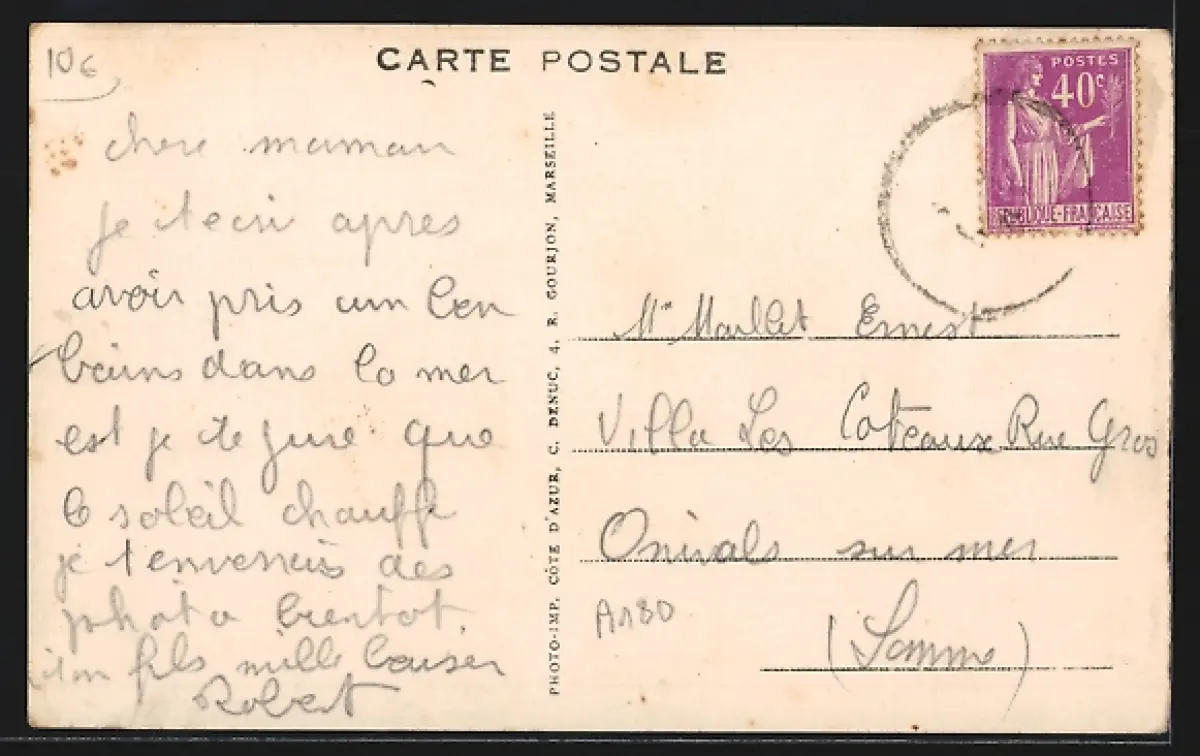 10€
CARTE POSTALE
POSTES
40c
REPUBLIQUE-FRANCAISE
chere maman
je tecri apres
avoir pris un bon
bains dans la mer
est je te jure que
le soleil chauffe
je t'enverrais des
photo bientot.
ton fils mille baiser
Robert
PHOTO-IMP. CÔTE D'AZUR, C. DENUC, 4, R. GOURJON, MARSEILLE
Mr Maillet Ernest
Villa Les Coteaux Rue Gros
Onivals sur mer
(Somme)
A180